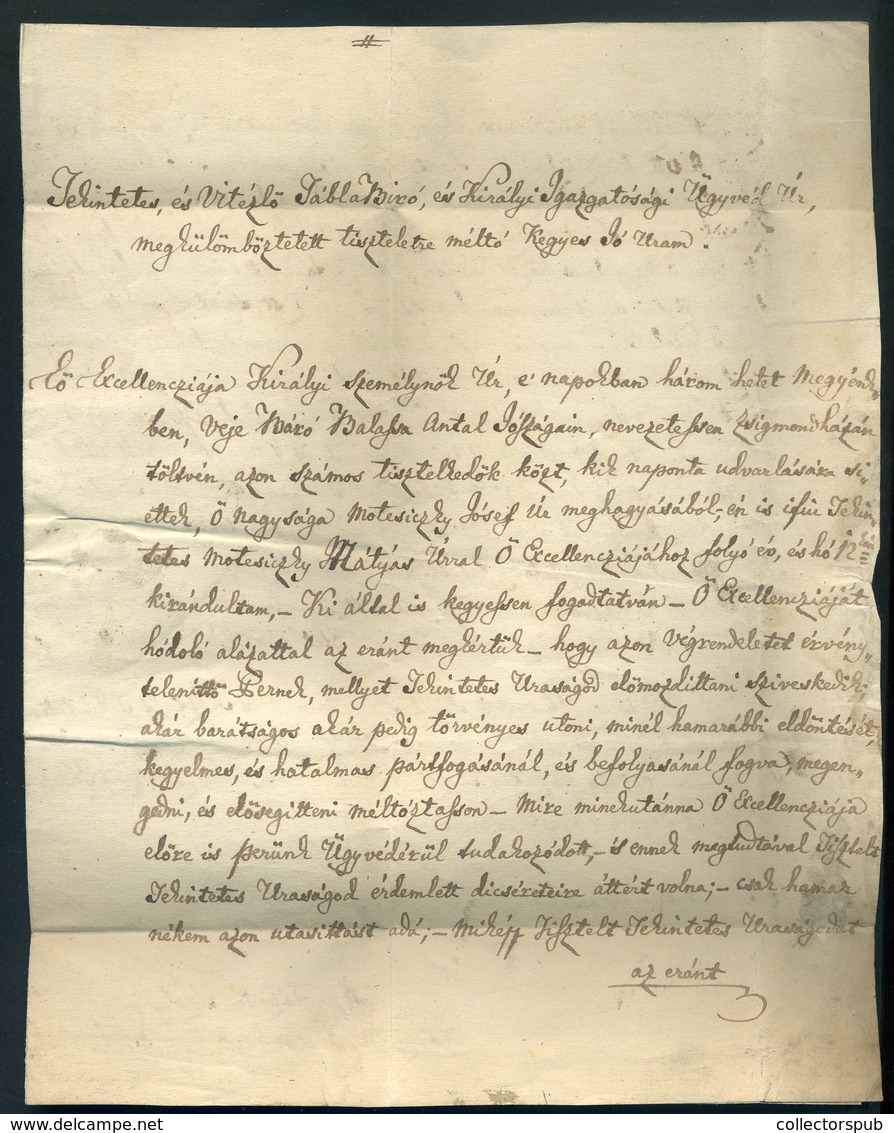 Tekintetes, és Vitézlő TáblaBiró, és Királyi Igazgatósági Ügyvéd Úr,
megkülömböztetett tiszteletre méltó Kegyes Jó Uram!
Eő Excellencziája Királyi személynök Úr, e' napokban három hetet Megyénk„
ben, Veje Báró Balassa Antal Jószágain, nevezetessen Zsigmondházán
töltvén, azon számos tisztelkedők közt, kik naponta udvarlására si„
ettek, Ő Nagysága Motesiczky Jósef Úr meghagyásából,- én is ifiu Tekin„
tetes Motesiczky Mátyás Úrral Ő Excellencziájához folyó év, és hó 12
kirándultam,- Ki által is kegyessen fogadtatván - Ő Excellencziáját
hódoló alázattal az eránt megkértük - hogy azon Végrendeletet érvény„
telenittő Pernek, mellyet Tekintetes Uraságod előmozdittani sziveskedik;
akár barátságos akár pedig törvényes utoni, minél hamarábbi eldöntését,
kegyelmes, és hatalmas pártfogásánál, és befolyasánál fogva, megen„
gedni, és elősegitteni méltóztasson - Mire minekutánna Ő Excellencziája
előre is perünk Ügyvédérül tudakozódott,- és ennek megtudtával Tisztelt
Tekintetes Uraságod érdemlett dicséreteire áttért volna;- csak hamar
nékem azon utasittást adá;- Miképp Tisztelt Tekintetes Uraságodat
az eránt
DELCAMPE.NET
collectorspub